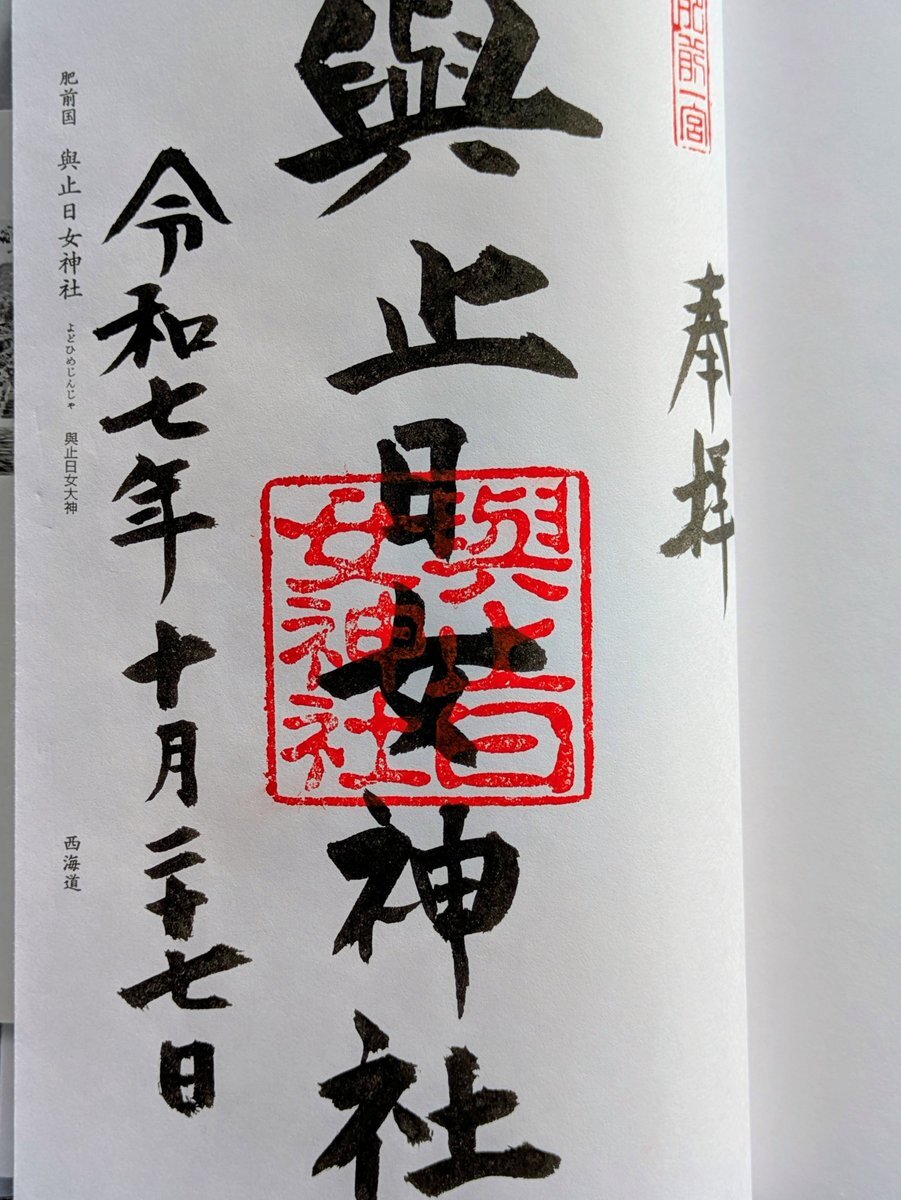 肥前一宮
奉拝
與止日女神社
與止日
女神社
令和七年十月二十七日
肥前国 與止日女神社 よどひめじんじゃ 與止日女大神 西海道